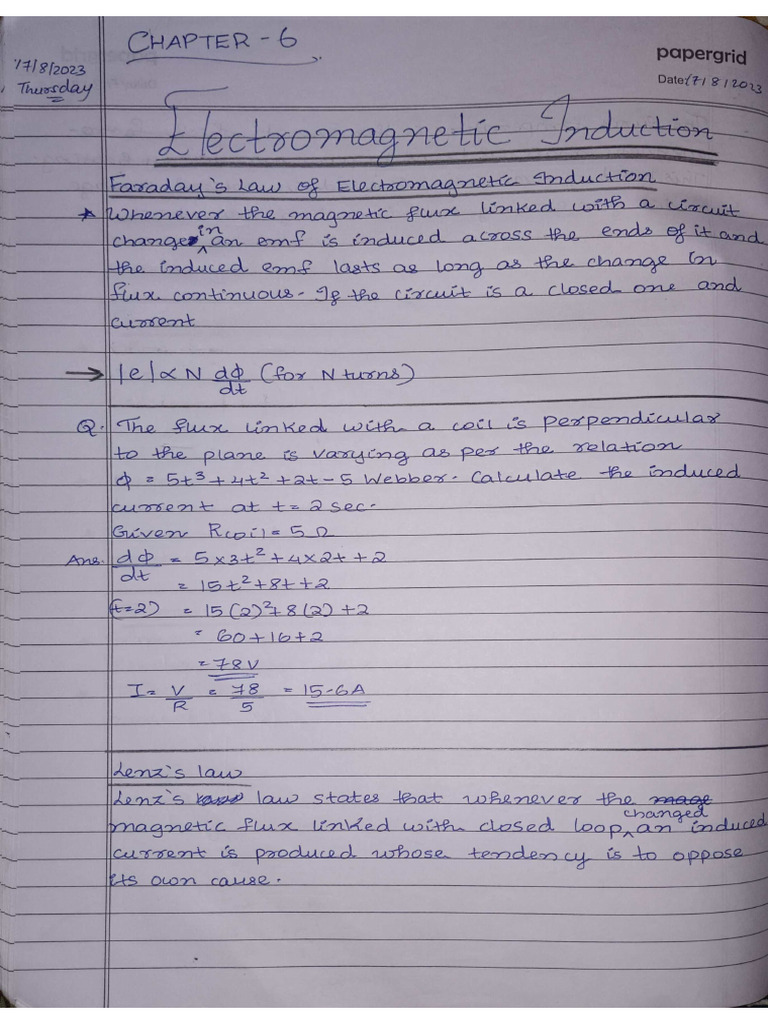 CHAPTER - 6
papergrid
17/8/2023
Thursday
Date: 17/8/2023
Electromagnetic Induction
Faraday's Law of Electromagnetic Induction
* Whenever the magnetic flux linked with a circuit
change in an emf is induced across the ends of it and
the induced emf lasts as long as the change in
flux continuous. If the circuit is a closed one and
current
→ |e| ∝ N dΦ/dt (for N turns)
Q. The flux linked with a coil is perpendicular
to the plane is varying as per the relation
Φ = 5t³ + 4t² + 2t - 5 Webber. Calculate the induced
current at t = 2 sec.
Given Rcoil = 5 Ω
Ans. dΦ/dt = 5×3t² + 4×2t + 2
= 15t² + 8t + 2
(t=2) = 15(2)² + 8(2) + 2
= 60 + 16 + 2
= 78V
I = V/R = 78/5 = 15.6A
Lenz's law
Lenz's law states that whenever the
magnetic flux linked with closed loop changed an induced
current is produced whose tendency is to oppose
its own cause.